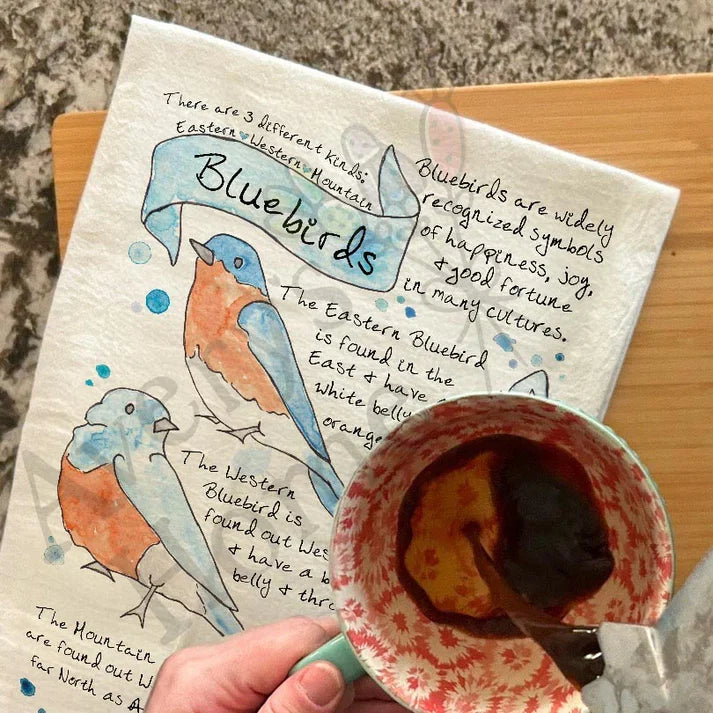 There are 3 different kinds:
Eastern Western Mountain
Bluebirds
Bluebirds are widely
recognized symbols
of happiness, joy,
& good fortune
in many cultures.
The Eastern Bluebird
is found in the
East & have a
white belly
orange
The Western
Bluebird is
found out Wes
& have a b
belly & thr
The Mountain
are found out W
far North as A
Avery's
Home